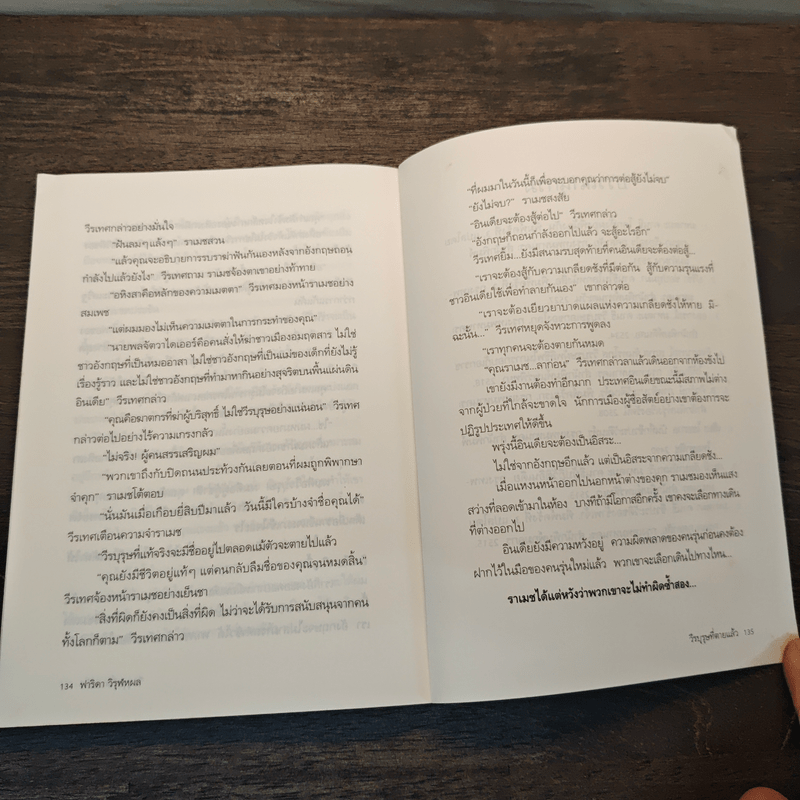 วีรเทศกล่าวอย่างมั่นใจ
“ฝันลมๆ แล้งๆ” ราเมชสวน
“แล้วคุณจะอธิบายการรบราฆ่าฟันกันเองหลังจากอังกฤษถอน
กำลังไปแล้วยังไง” วีรเทศถาม ราเมชจ้องตาเขาอย่างท้าทาย
“อหิงสาคือหลักของความเมตตา” วีรเทศมองหน้าราเมชอย่าง
สมเพช
“แต่ผมมองไม่เห็นความเมตตาในการกระทำของคุณ”
“นายพลจัตวาไดเออร์คือคนสั่งให้ฆ่าชาวเมืองอมฤตสาร ไม่ใช่
ชาวอังกฤษที่เป็นหมออาสา ไม่ใช่ชาวอังกฤษที่เป็นแม่ของเด็กที่ยังไม่รู้
เรื่องรู้ราว และไม่ใช่ชาวอังกฤษที่ทำมาหากินอย่างสุจริตบนพื้นแผ่นดิน
อินเดีย” วีรเทศกล่าว
“คุณคือฆาตกรที่ฆ่าผู้บริสุทธิ์ ไม่ใช่วีรบุรุษอย่างแน่นอน” วีรเทศ
กล่าวต่อไปอย่างไร้ความเกรงกลัว
“ไม่จริง! ผู้คนสรรเสริญผม”
“พวกเขาถึงกับปิดถนนประท้วงกันเลยตอนที่ผมถูกพิพากษา
จำคุก” ราเมชโต้ตอบ
“นั่นมันเมื่อเกือบยี่สิบปีมาแล้ว วันนี้มีใครบ้างจำชื่อคุณได้”
วีรเทศเตือนความจำราเมช
“วีรบุรุษที่แท้จริงจะมีชื่ออยู่ไปตลอดแม้ตัวจะตายไปแล้ว
“คุณยังมีชีวิตอยู่แท้ๆ แต่คนกลับลืมชื่อของคุณจนหมดสิ้น”
วีรเทศจ้องหน้าราเมชอย่างเย็นชา
“สิ่งที่ผิดก็ยังคงเป็นสิ่งที่ผิด ไม่ว่าจะได้รับการสนับสนุนจากคน
ทั้งโลกก็ตาม” วีรเทศกล่าว
134 ฟาริดา วิรุฬหผล
“ที่ผมมาในวันนี้ก็เพื่อจะบอกคุณว่าการต่อสู้ยังไม่จบ”
“ยังไม่จบ?” ราเมชสงสัย
“อินเดียจะต้องสู้ต่อไป” วีรเทศกล่าว
“อังกฤษก็ถอนกำลังออกไปแล้ว จะสู้อะไรอีก”
วีรเทศยิ้ม...ยังมีสนามรบสุดท้ายที่คนอินเดียจะต้องต่อสู้...
“เราจะต้องสู้กับความเกลียดชังที่มีต่อกัน สู้กับความรุนแรงที่
ชาวอินเดียใช้เพื่อทำลายกันเอง” เขากล่าวต่อ
“เราจะต้องเยียวยาบาดแผลแห่งความเกลียดชังให้หาย มิ-
ฉะนั้น...” วีรเทศหยุดจังหวะการพูดลง
“เราทุกคนจะต้องตายกันหมด
“คุณราเมช...ลาก่อน” วีรเทศกล่าวลาแล้วเดินออกจากห้องขังไป
เขายังมีงานต้องทำอีกมาก ประเทศอินเดียขณะนี้มีสภาพไม่ต่าง
จากผู้ป่วยที่ใกล้จะขาดใจ นักการเมืองผู้ซื่อสัตย์อย่างเขาต้องการจะ
ปฏิรูปประเทศให้ดีขึ้น
พรุ่งนี้อินเดียจะต้องเป็นอิสระ...
ไม่ใช่จากอังกฤษอีกแล้ว แต่เป็นอิสระจากความเกลียดชัง...
เมื่อแหงนหน้าออกไปนอกหน้าต่างของคุก ราเมชมองเห็นแสง
สว่างที่ลอดเข้ามาในห้อง บางทีถ้ามีโอกาสอีกครั้ง เขาคงจะเลือกทางเดิน
ที่ต่างออกไป
อินเดียยังมีความหวังอยู่ ความผิดพลาดของคนรุ่นก่อนคงต้อง
ฝากไว้ในมือของคนรุ่นใหม่แล้ว พวกเขาจะเลือกเดินไปทางไหน...
ราเมชได้แต่หวังว่าพวกเขาจะไม่ทำผิดซ้ำสอง...
วีรบุรุษที่ตายแล้ว 135